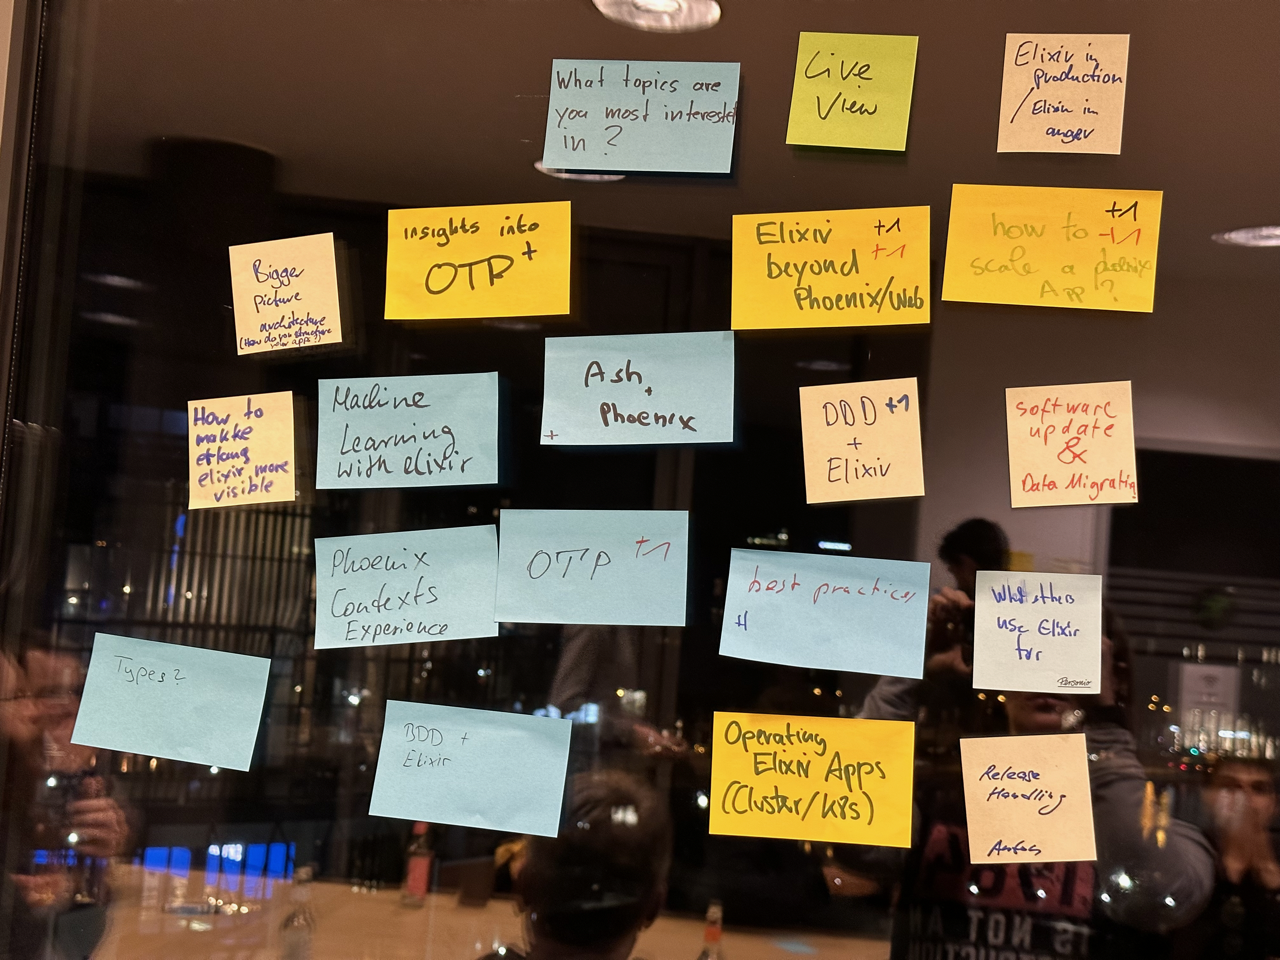 What topics are
you most interested
in ?
Live
View
Elixir in
production
/ Elixir in
anger
Bigger
picture
architecture
(How do you structure
your apps?)
insights into
OTP +
Elixir +1
beyond +1
Phoenix/Web
+1
how to +1
scale a phoenix
App ?
How to
makke
erlang
elixir more
visible
Machine
Learning
with elixir
Ash +
Phoenix
+
DDD +1
+
Elixir
software
update
&
Data Migration
Phoenix
Contexts
Experience
OTP +1
best practices
What others
use Elixir
for
Personio
Types?
BDD +
Elixir
Operating
Elixir Apps
(Cluster/K8s)
Release
Handling
IS NOT AN